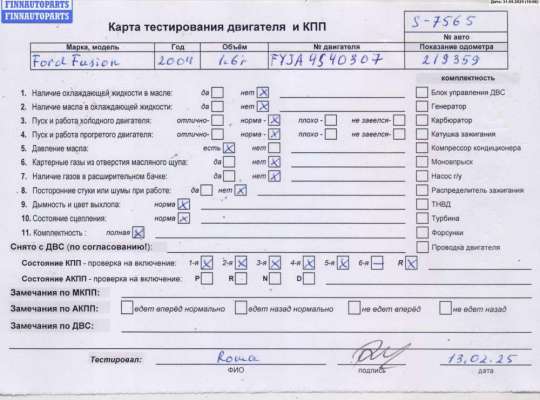 FINNAUTOPARTS
FINNAUTOPARTS
Дата: 31.05.2025
Карта тестирования двигателя и КПП
S-7565
№ авто
Марка, модель Год Объём № двигателя Показание одометра
Ford Fusion 2004 1.6г FYJA 4S40307 219359
комплектность
1. Наличие охлаждающей жидкости в масле: да нет X Блок управления ДВС
2. Наличие масла в охлаждающей жидкости: да нет X Генератор
3. Пуск и работа холодного двигателя: отлично- норма - X плохо - не завелся- Карбюратор
4. Пуск и работа прогретого двигателя: отлично- норма - X плохо - не завелся- Катушка зажигания
5. Давление масла: есть X нет Компрессор кондиционера
6. Картерные газы из отверстия масляного щупа: да нет X Моновпрыск
7. Наличие газов в расширительном бачке: да нет X Насос г/у
8. Посторонние стуки или шумы при работе: да нет X Распределитель зажигания
9. Дымность и цвет выхлопа: норма X ТНВД
10. Состояние сцепления: норма X Турбина
11. Комплектность : полная X Форсунки
Снято с ДВС (по согласованию!): Проводка двигателя
Состояние КПП - проверка на включение: 1-я X 2-я X 3-я X 4-я X 5-я X 6-я — R X
Состояние АКПП - проверка на включение: P R N D
Замечания по МКПП:
Замечания по АКПП: едет вперёд нормально едет назад нормально не едет вперёд не едет назад
Замечания по ДВС:
Тестировал: Roma 13.02.25
ФИО подпись дата